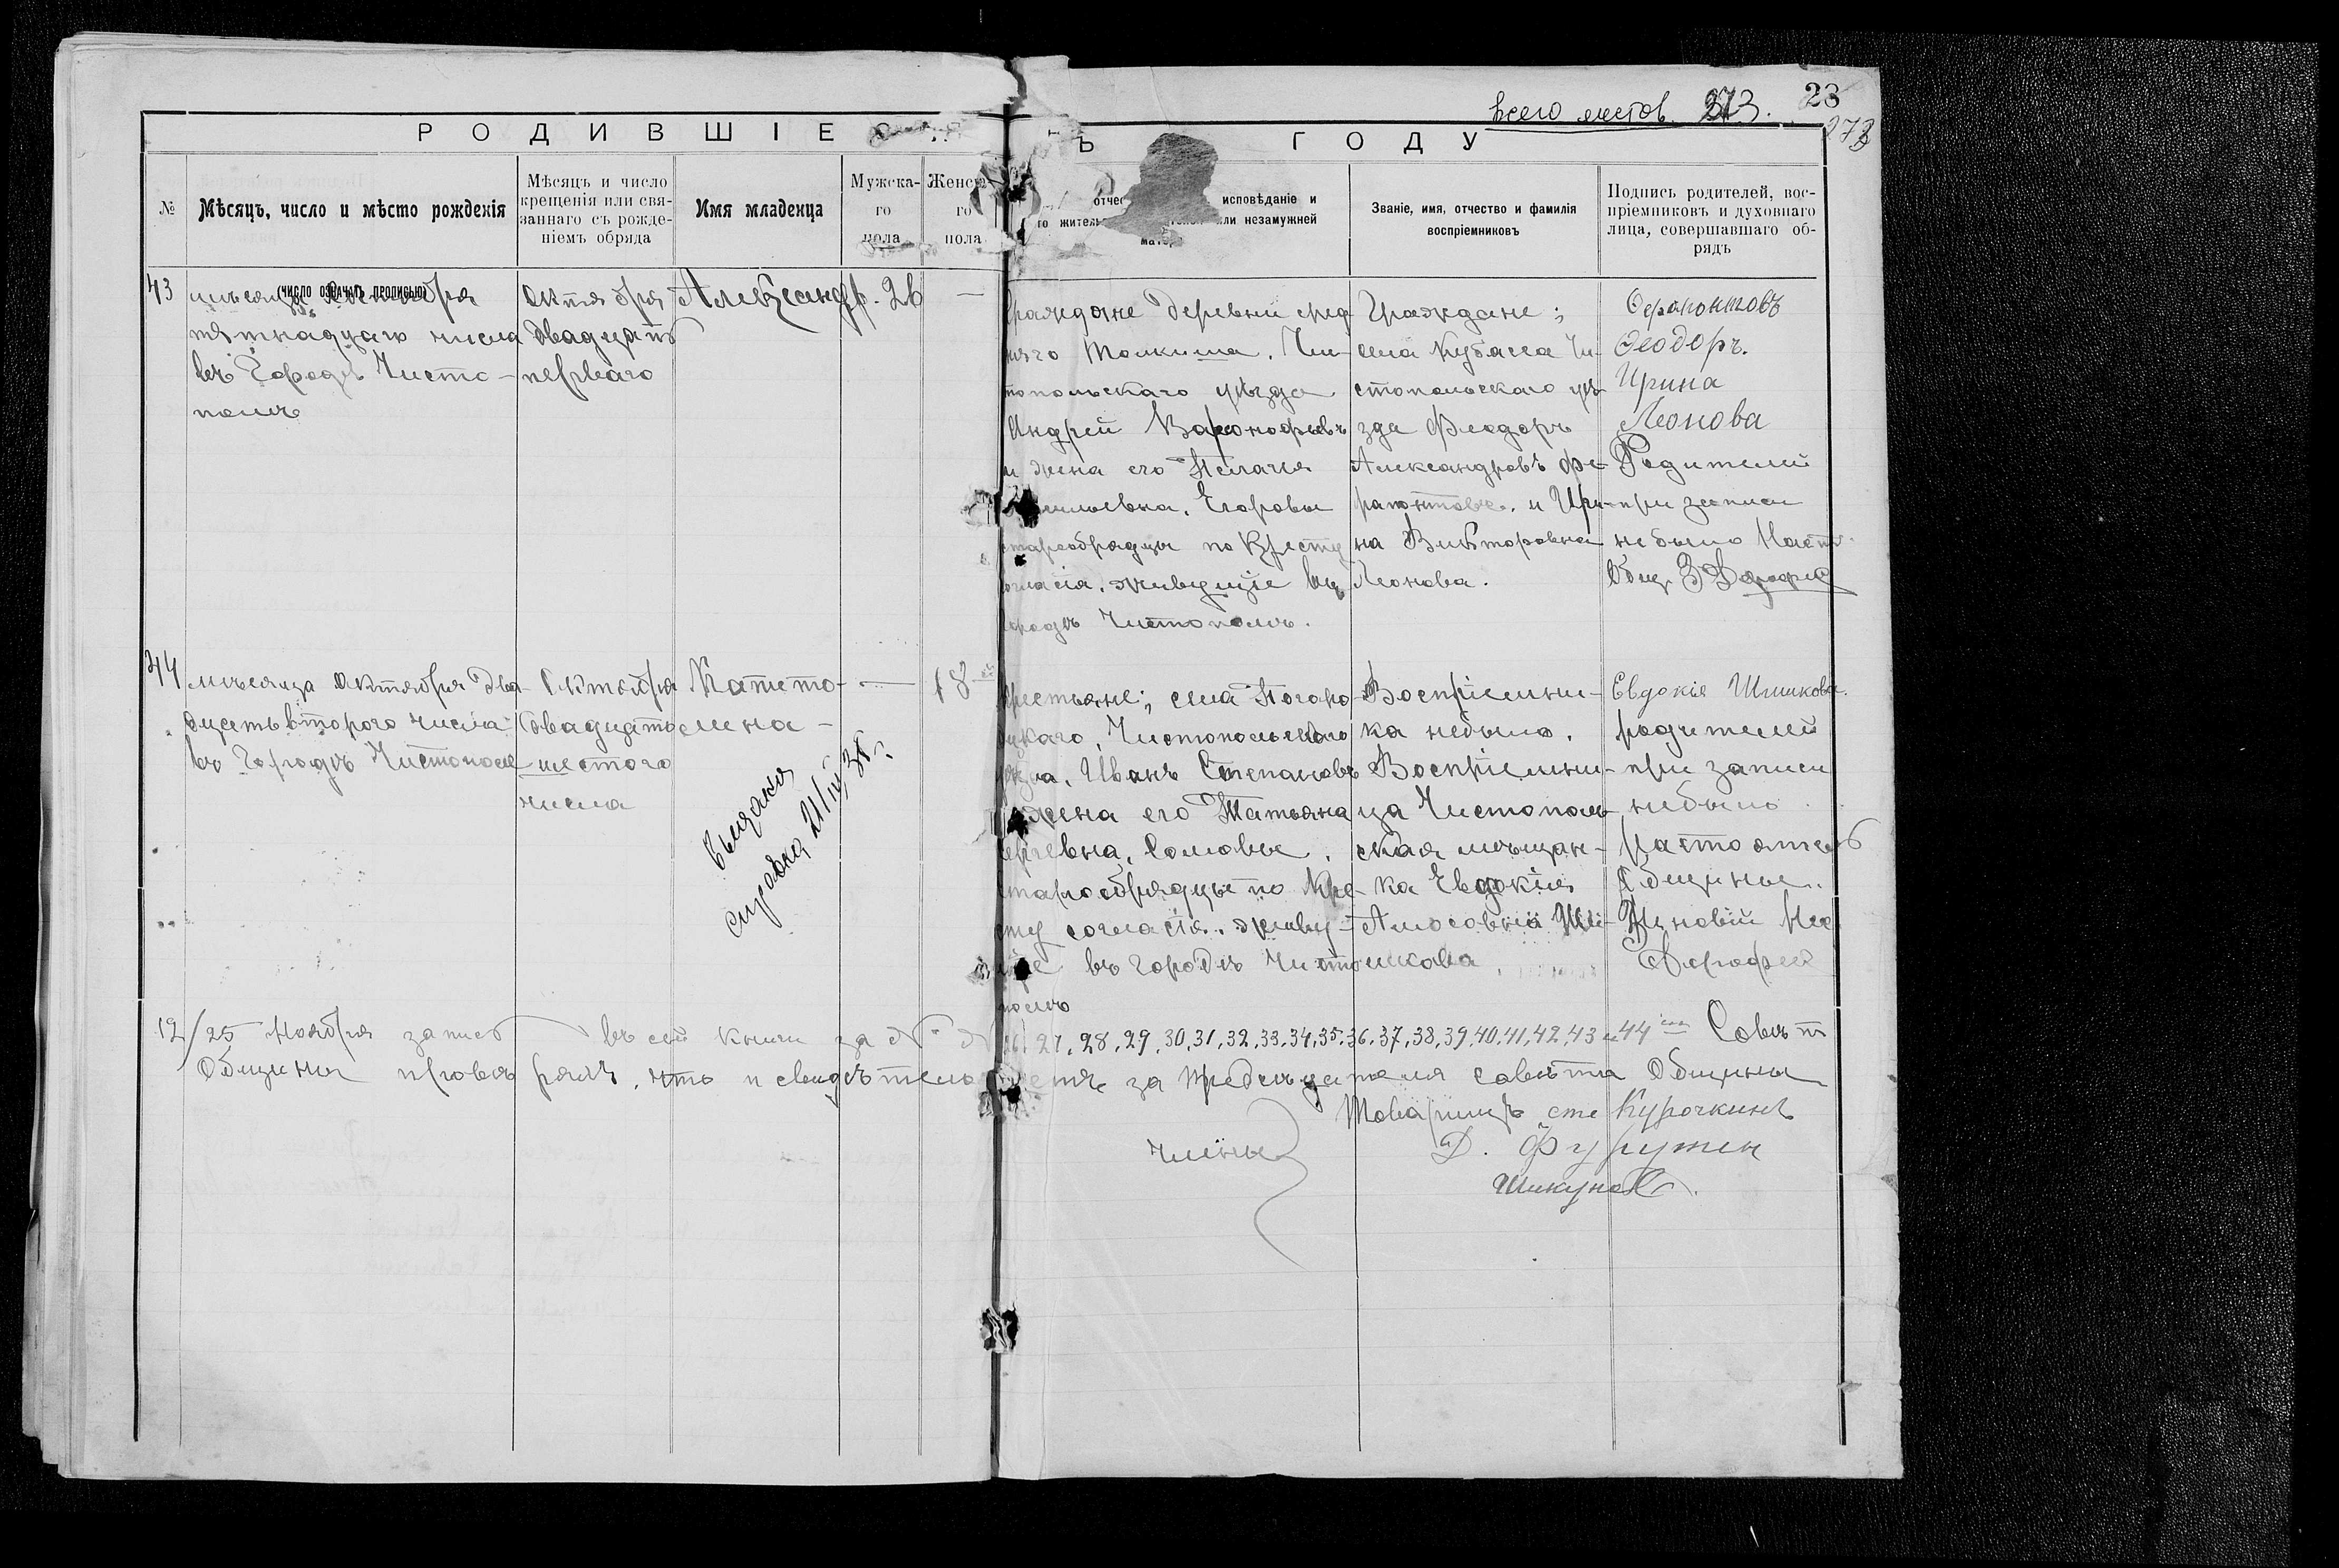 всего листов 273.
23
273
РОДИВШІЕС
Ъ ГОДУ
№
Мѣсяцъ, число и мѣсто рожденія
(число означать прописью)
Мѣсяцъ и число
крещенія или свя-
заннаго съ рожде-
ніемъ обряда
Имя младенца
Мужска-
го
пола
Женск
го
пола
отчес исповѣданіе и
го житель ли незамужней
матер
Званіе, имя, отчество и фамилія
воспріемниковъ
Подпись родителей, вос-
пріемниковъ и духовнаго
лица, совершавшаго об-
рядъ
43
мѣсяца
пятнадцаго числа
въ Городѣ Чисто-
полѣ
Октября
двадцать
перваго
Александр.
26
—
Граждане деревни сред
няго Толкиша, Чи-
топольскаго уѣзда
Андрей Варфонофьевъ
и жена его Пелагия
Егоровы
старообрядцы по Кресту
огласія, живущіе въ
городѣ Чистополѣ.
Граждане;
села Кубасса Чи-
стопольскаго уѣ-
зда Феодоръ
Александровъ Фе-
рапонтовъ. и Ири-
на Викторовна
Леонова.
Ферапонтовъ
Феодоръ.
Ирина
Леонова
Родителей
при записи
не было Наст.
Общ. З Дорофе
44
мѣсяца октября два-
дцеть второго числа
въ Городѣ Чистополе
Октября
двадцать
шестого
числа
Капето-
лина -
—
18
выдана
справка 21/IV 38 г.
Крестьяне; села
Чистопольскаго
уѣзда, Иванъ Степановъ
жена его Татьяна
Сергевна, Сомовы.
старообрядцы по Кре-
сту согласія. живу-
щіе въ городѣ Чисто
полѣ
Воспріемни-
ка небыло.
Воспріемни-
ца Чистополь-
ская мѣщан-
ка Евдокія
Амосовна Ши-
шкова
Евдокія Шишкова.
родителей
при записи
небыло.
Настоятель
Общины.
Зиновій
Дорофей
12/25 Ноября запись въ сей книги за №
27, 28, 29, 30, 31, 32, 33, 34, 35, 36, 37, 38, 39, 40, 41, 42, 43 и 44 Совѣт
Общины провѣрялъ, что и свидѣтельс
етъ за Предсѣдателя совѣта Общины
Товарищъ Курочкинъ
Члены
Д.
Шикунов